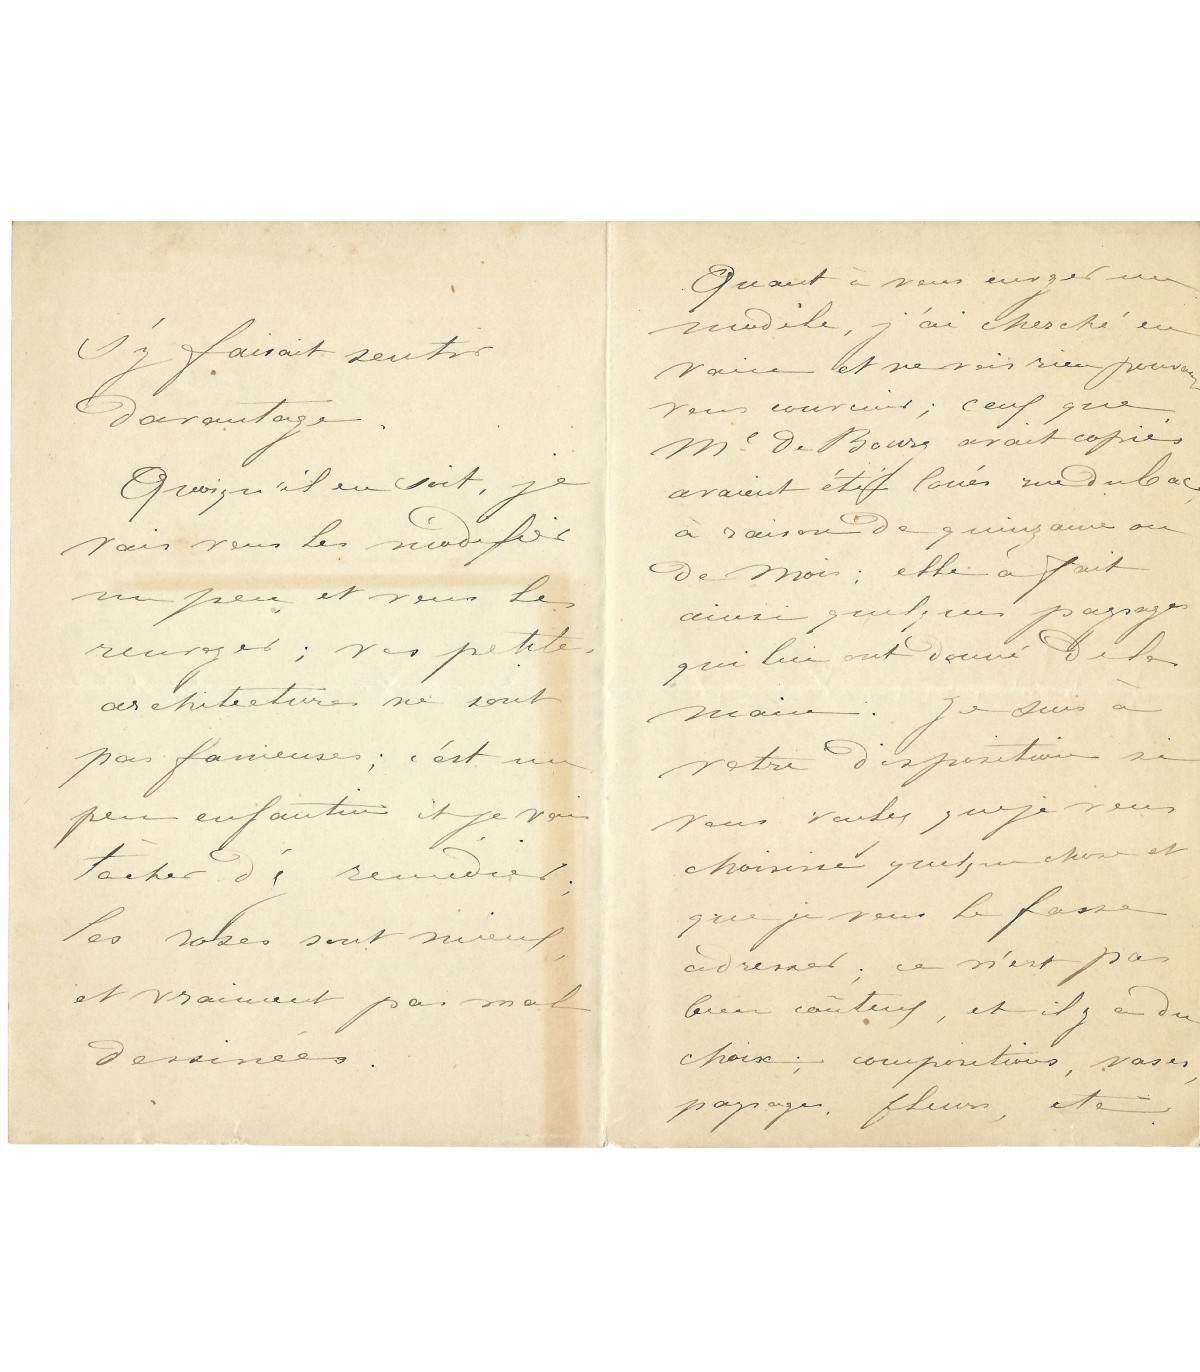 s'y faisait sentir
davantage.
Quoiqu'il en soit, je
vais vous les modifier
un peu et vous les
renvoyer ; vos petites
architectures ne sont
pas fameuses ; c'est un
peu enfantin et je vais
tâcher d'y remédier ;
les roses sont mieux,
et vraiment pas mal
dessinées.
Quant à vous envoyer un
modèle, j'ai cherché en
vain et ne vois rien pouvant
vous convenir ; ceux que
Me de Bourg avait copiés
avaient été loués rue du bac,
à raison de quinzaine ou
de mois ; elle a fait
ainsi quelques paysages
qui lui ont donné de la
main. Je suis à
votre disposition si
vous voulez que je vous
choisisse quelque chose et
que je vous le fasse
adresser ; ce n'est pas
bien coûteux, et il y a du
choix ; compositions, vases,
paysages, fleurs, etc